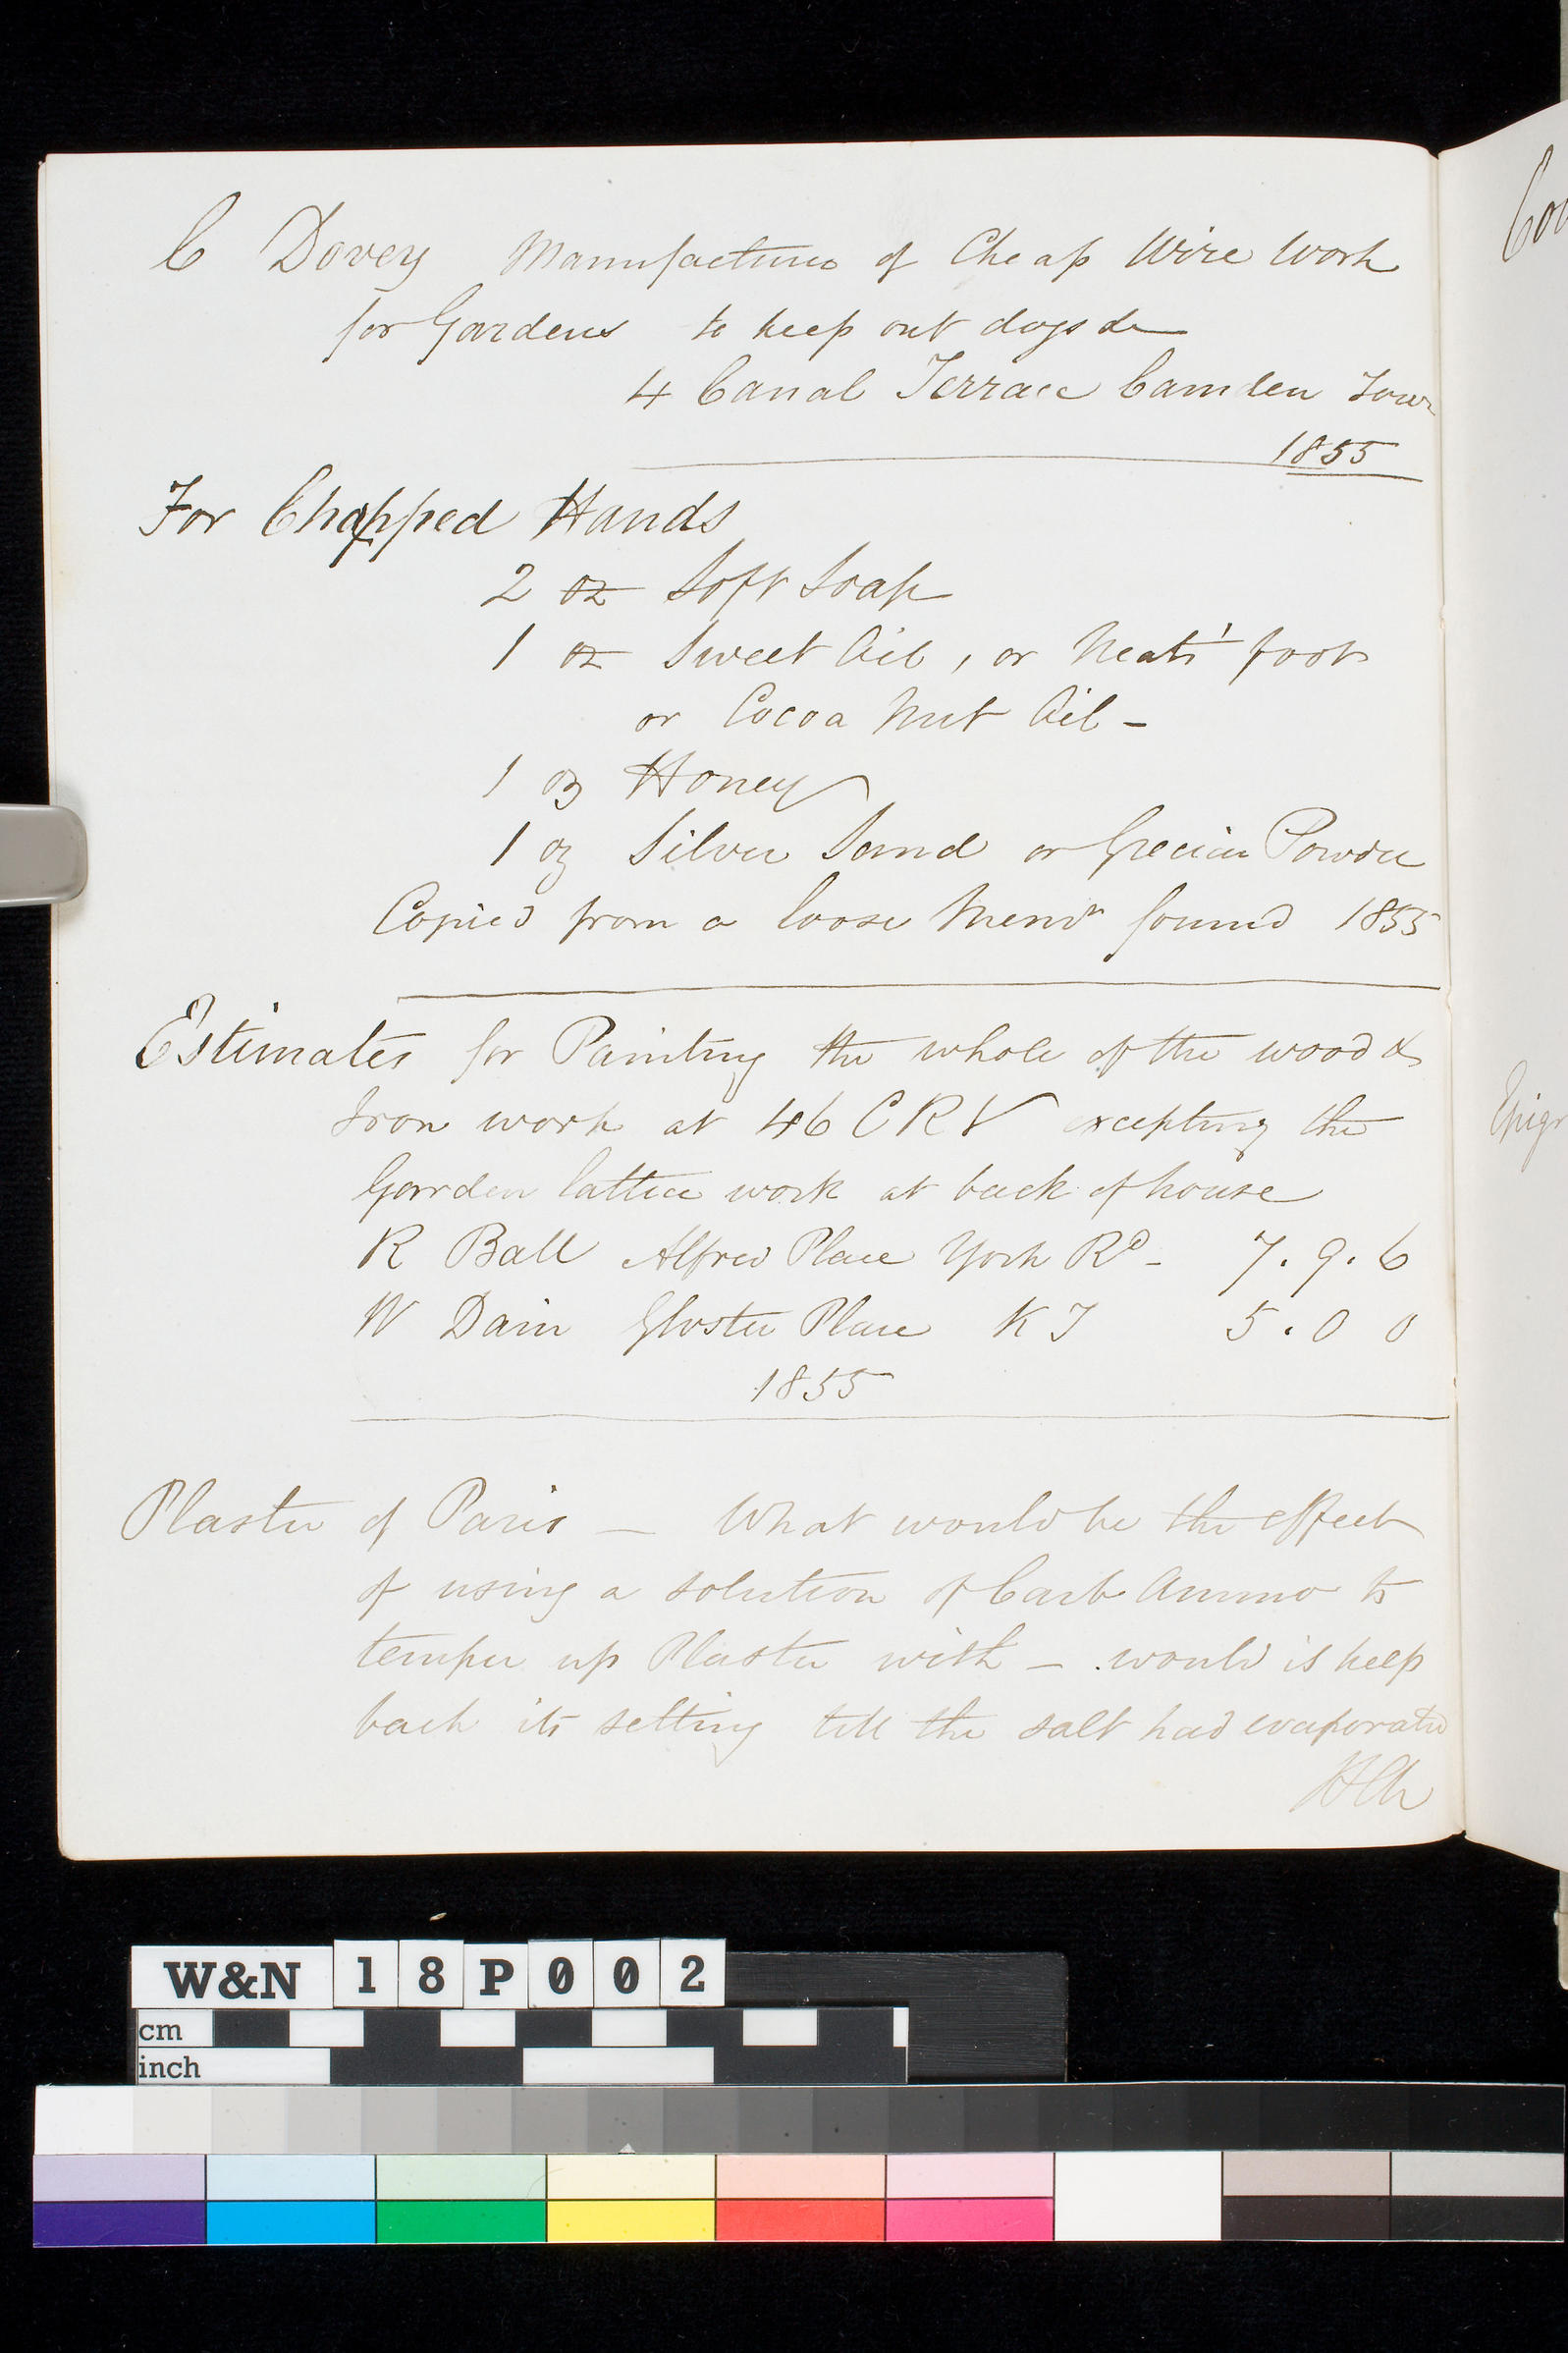 C Dovey Manufacturer of Cheap Wire Work
for Gardens to keep out dogs &c
4 Canal Terrace Camden Town
1855
For Chapped Hands
2 oz Soft Soap
1 oz Sweet Oil, or Neats' foot
or Cocoa Nut Oil -
1 oz Honey
1 oz Silver Sand or Grecian Powder
Copied from a loose Memdm found 1855
Estimates for Painting the whole of the wood &
Iron work at 46 C R V excepting the
Garden lattice work at back of house
R Ball Alfred Place York Rd - 7.9.6
W Dain Gloster Place K T 5.0 0
1855
Plaster of Paris - What would be the effect
of using a solution of Carb Ammo to
temper up Plaster with - would is keep
back its setting till the salt had evaporated
W&N 18P002
cm
inch